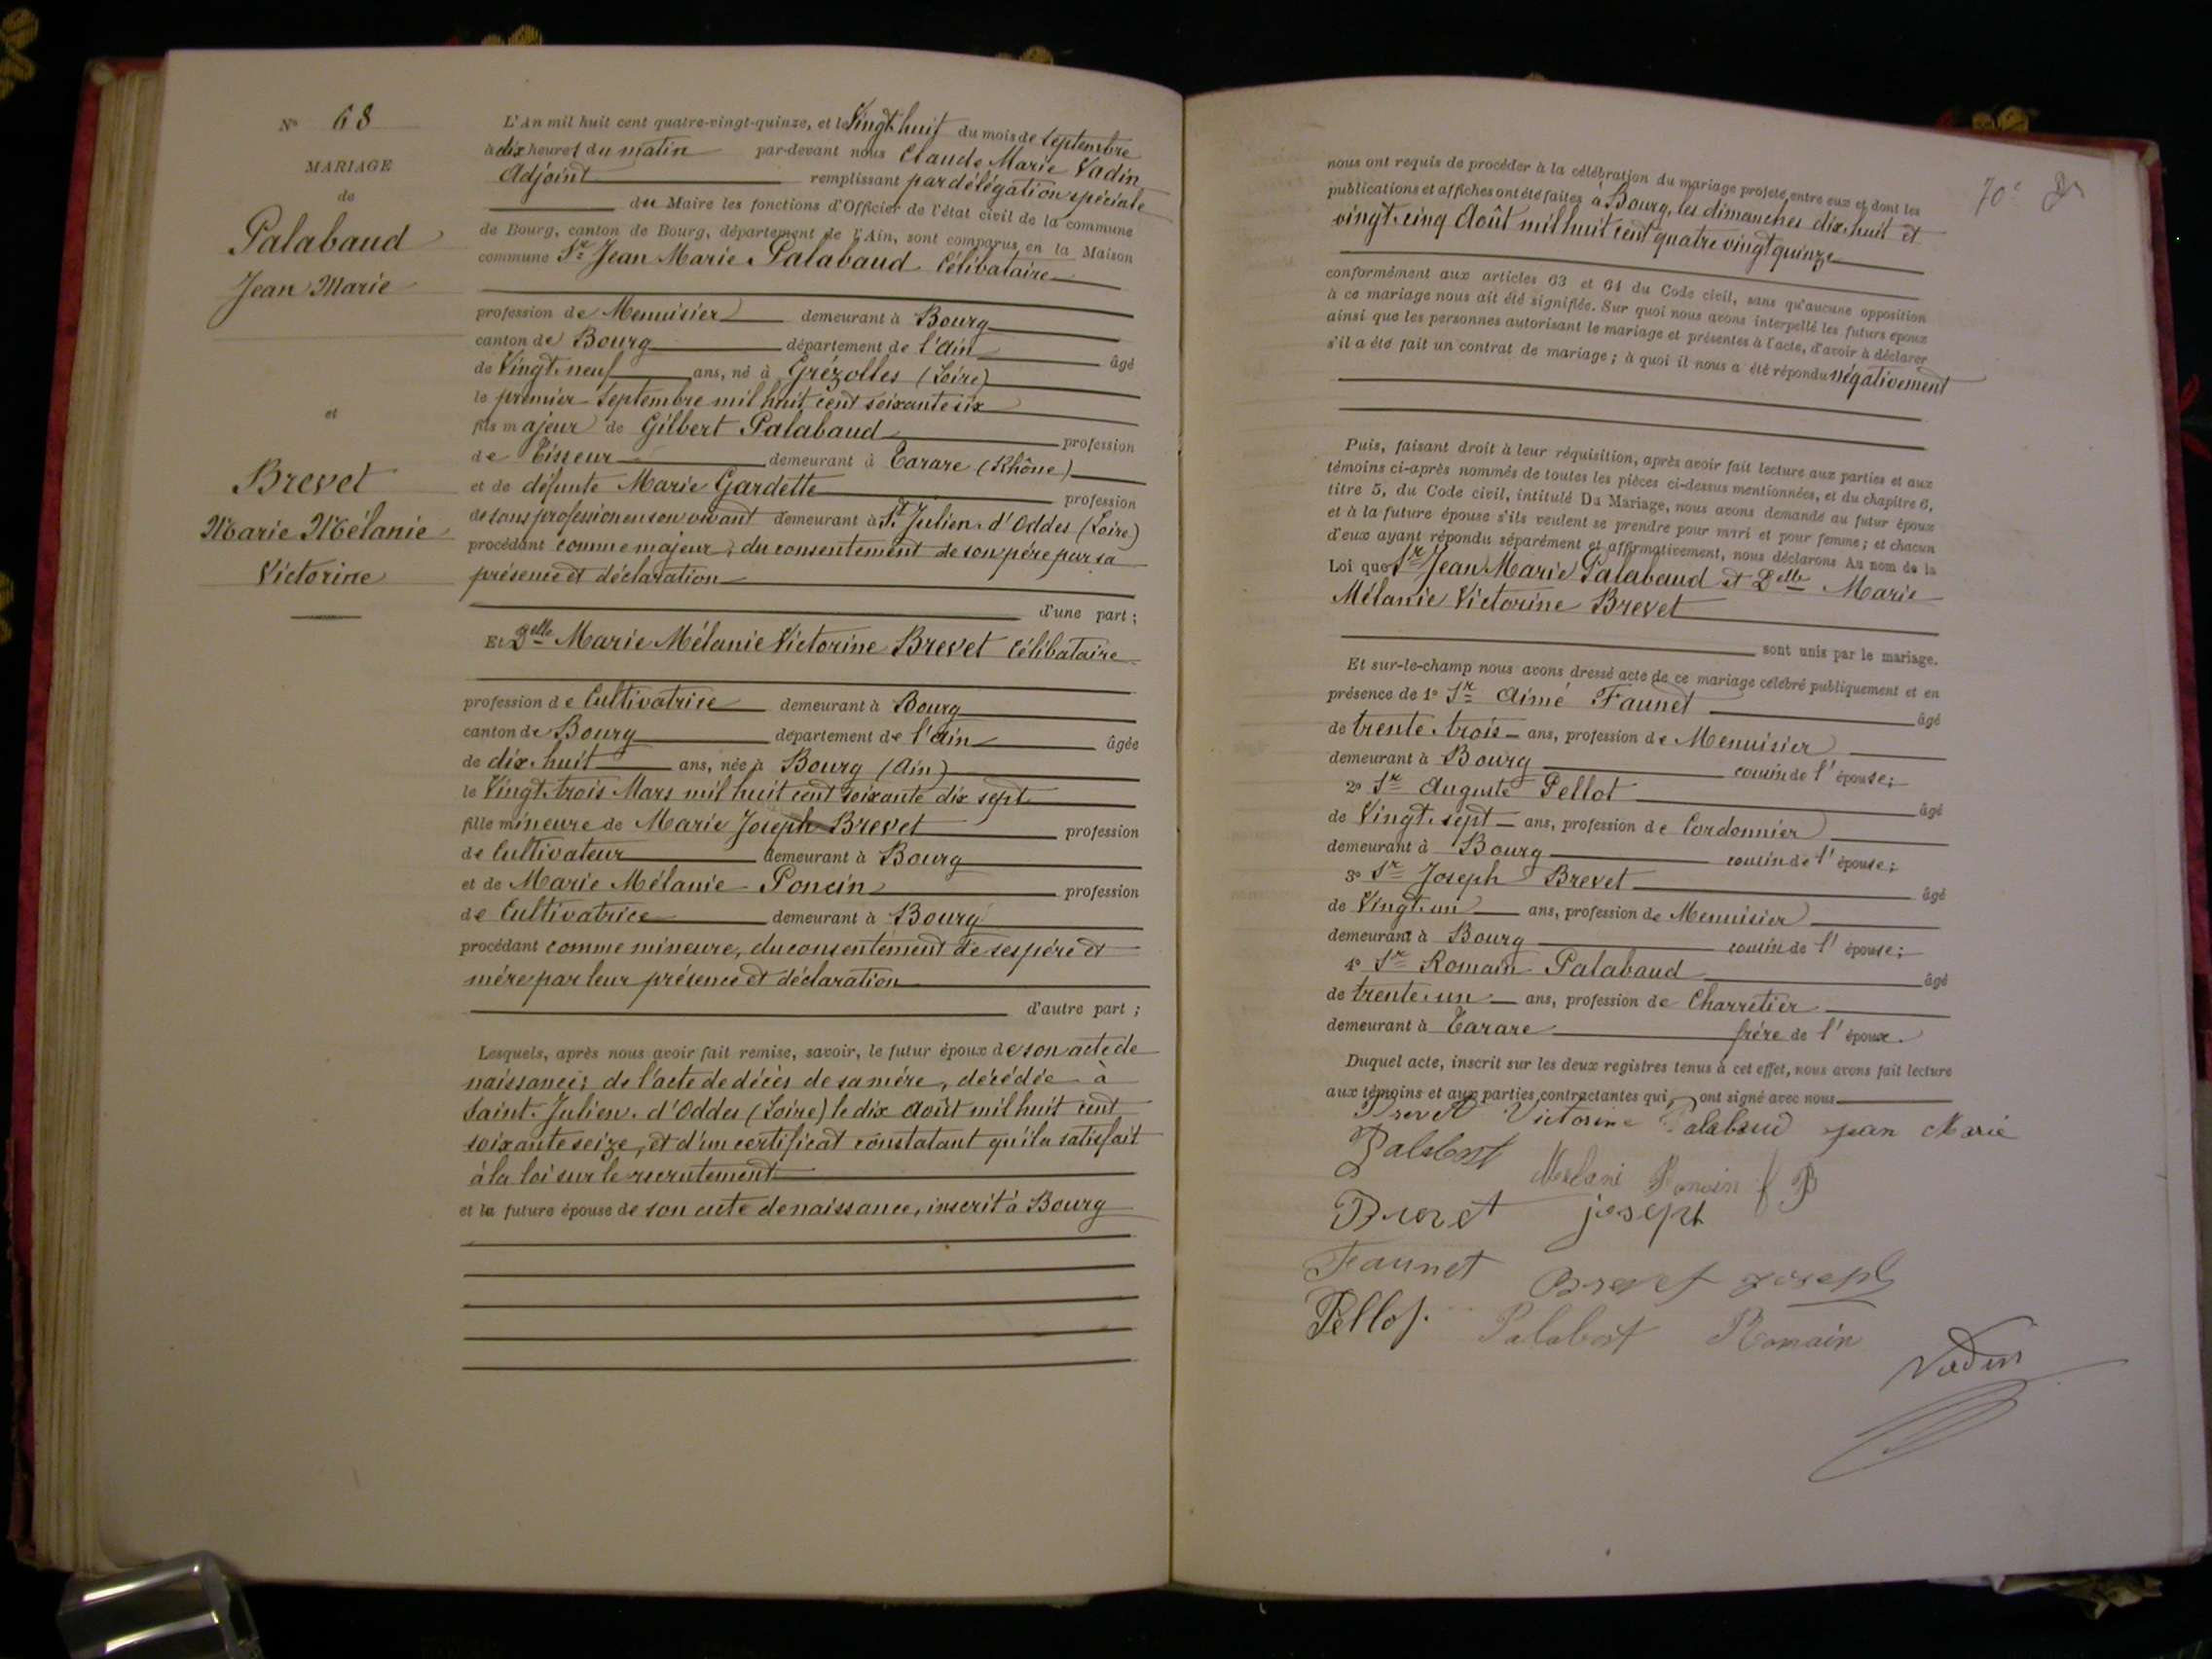 Nº 68
MARIAGE
de
Palabaud
Jean Marie
et
Brevet
Marie Mélanie
Victorine
L'An mil huit cent quatre-vingt-quinze, et le Vingt huit du mois de Septembre
à dix heures du matin par-devant nous Claude Marie Vadin
Adjoint remplissant par délégation spéciale
du Maire les fonctions d'Officier de l'état civil de la commune
de Bourg, canton de Bourg, département de l'Ain, sont comparus en la Maison
commune Sr Jean Marie Palabaud Célibataire
profession de Menuisier demeurant à Bourg
canton de Bourg département de l'Ain âgé
de Vingt-neuf ans, né à Grézolles (Loire)
le premier Septembre mil huit cent soixante six
fils majeur de Gilbert Palabaud profession
de Tisseur demeurant à Tarare (Rhône)
et de défunte Marie Gardette profession
de sans profession en son vivant demeurant à St Julien d'Oddes (Loire)
procédant comme majeur, du consentement de son père par sa
présence et déclaration
d'une part ;
Et Delle Marie Mélanie Victorine Brevet Célibataire
profession de Cultivatrice demeurant à Bourg
canton de Bourg département de l'Ain âgée
de dix-huit ans, née à Bourg (Ain)
le Vingt-trois Mars mil huit cent soixante dix sept
fille mineure de Marie Joseph Brevet profession
de Cultivateur demeurant à Bourg
et de Marie Mélanie Poncin profession
de Cultivatrice demeurant à Bourg
procédant comme mineure, du consentement de ses père et
mère par leur présence et déclaration
d'autre part ;
Lesquels, après nous avoir fait remise, savoir, le futur époux de son acte de
naissance; de l'acte de décès de sa mère, décédée à
Saint-Julien-d'Oddes (Loire) le dix Août mil huit cent
soixante seize, et d'un certificat constatant qu'il a satisfait
à la loi sur le recrutement
et la future épouse de son acte de naissance, inscrit à Bourg
70e
nous ont requis de procéder à la célébration du mariage projeté entre eux et dont les
publications et affiches ont été faites à Bourg, les dimanches dix-huit et
vingt-cinq Août mil huit cent quatre vingt quinze
conformément aux articles 63 et 64 du Code civil, sans qu'aucune opposition
à ce mariage nous ait été signifiée. Sur quoi nous avons interpellé les futurs époux
ainsi que les personnes autorisant le mariage et présentes à l'acte, d'avoir à déclarer
s'il a été fait un contrat de mariage ; à quoi il nous a été répondu négativement
Puis, faisant droit à leur réquisition, après avoir fait lecture aux parties et aux
témoins ci-après nommés de toutes les pièces ci-dessus mentionnées, et du chapitre 6,
titre 5, du Code civil, intitulé Du Mariage, nous avons demandé au futur époux
et à la future épouse s'ils veulent se prendre pour mari et pour femme ; et chacun
d'eux ayant répondu séparément et affirmativement, nous déclarons Au nom de la
Loi que Sr Jean Marie Palabaud et Delle Marie
Mélanie Victorine Brevet
sont unis par le mariage.
Et sur-le-champ nous avons dressé acte de ce mariage célébré publiquement et en
présence de 1º Sr Aimé Faunet âgé
de trente-trois ans, profession de Menuisier
demeurant à Bourg cousin de l'épouse ;
2º Sr Auguste Pellot âgé
de Vingt-sept ans, profession de Cordonnier
demeurant à Bourg cousin de l'épouse ;
3º Sr Joseph Brevet âgé
de Vingt-un ans, profession de Menuisier
demeurant à Bourg cousin de l'épouse ;
4º Sr Romain Palabaud âgé
de trente-un ans, profession de Charretier
demeurant à Tarare frère de l'époux.
Duquel acte, inscrit sur les deux registres tenus à cet effet, nous avons fait lecture
aux témoins et aux parties contractantes qui, ont signé avec nous
Brevet Victorine Palabaud jean Marie
Palabost Melani Poncin f B
Brevet joseph
Faunet Brevet joseph
Pellot. Palabost Romain
Vadin